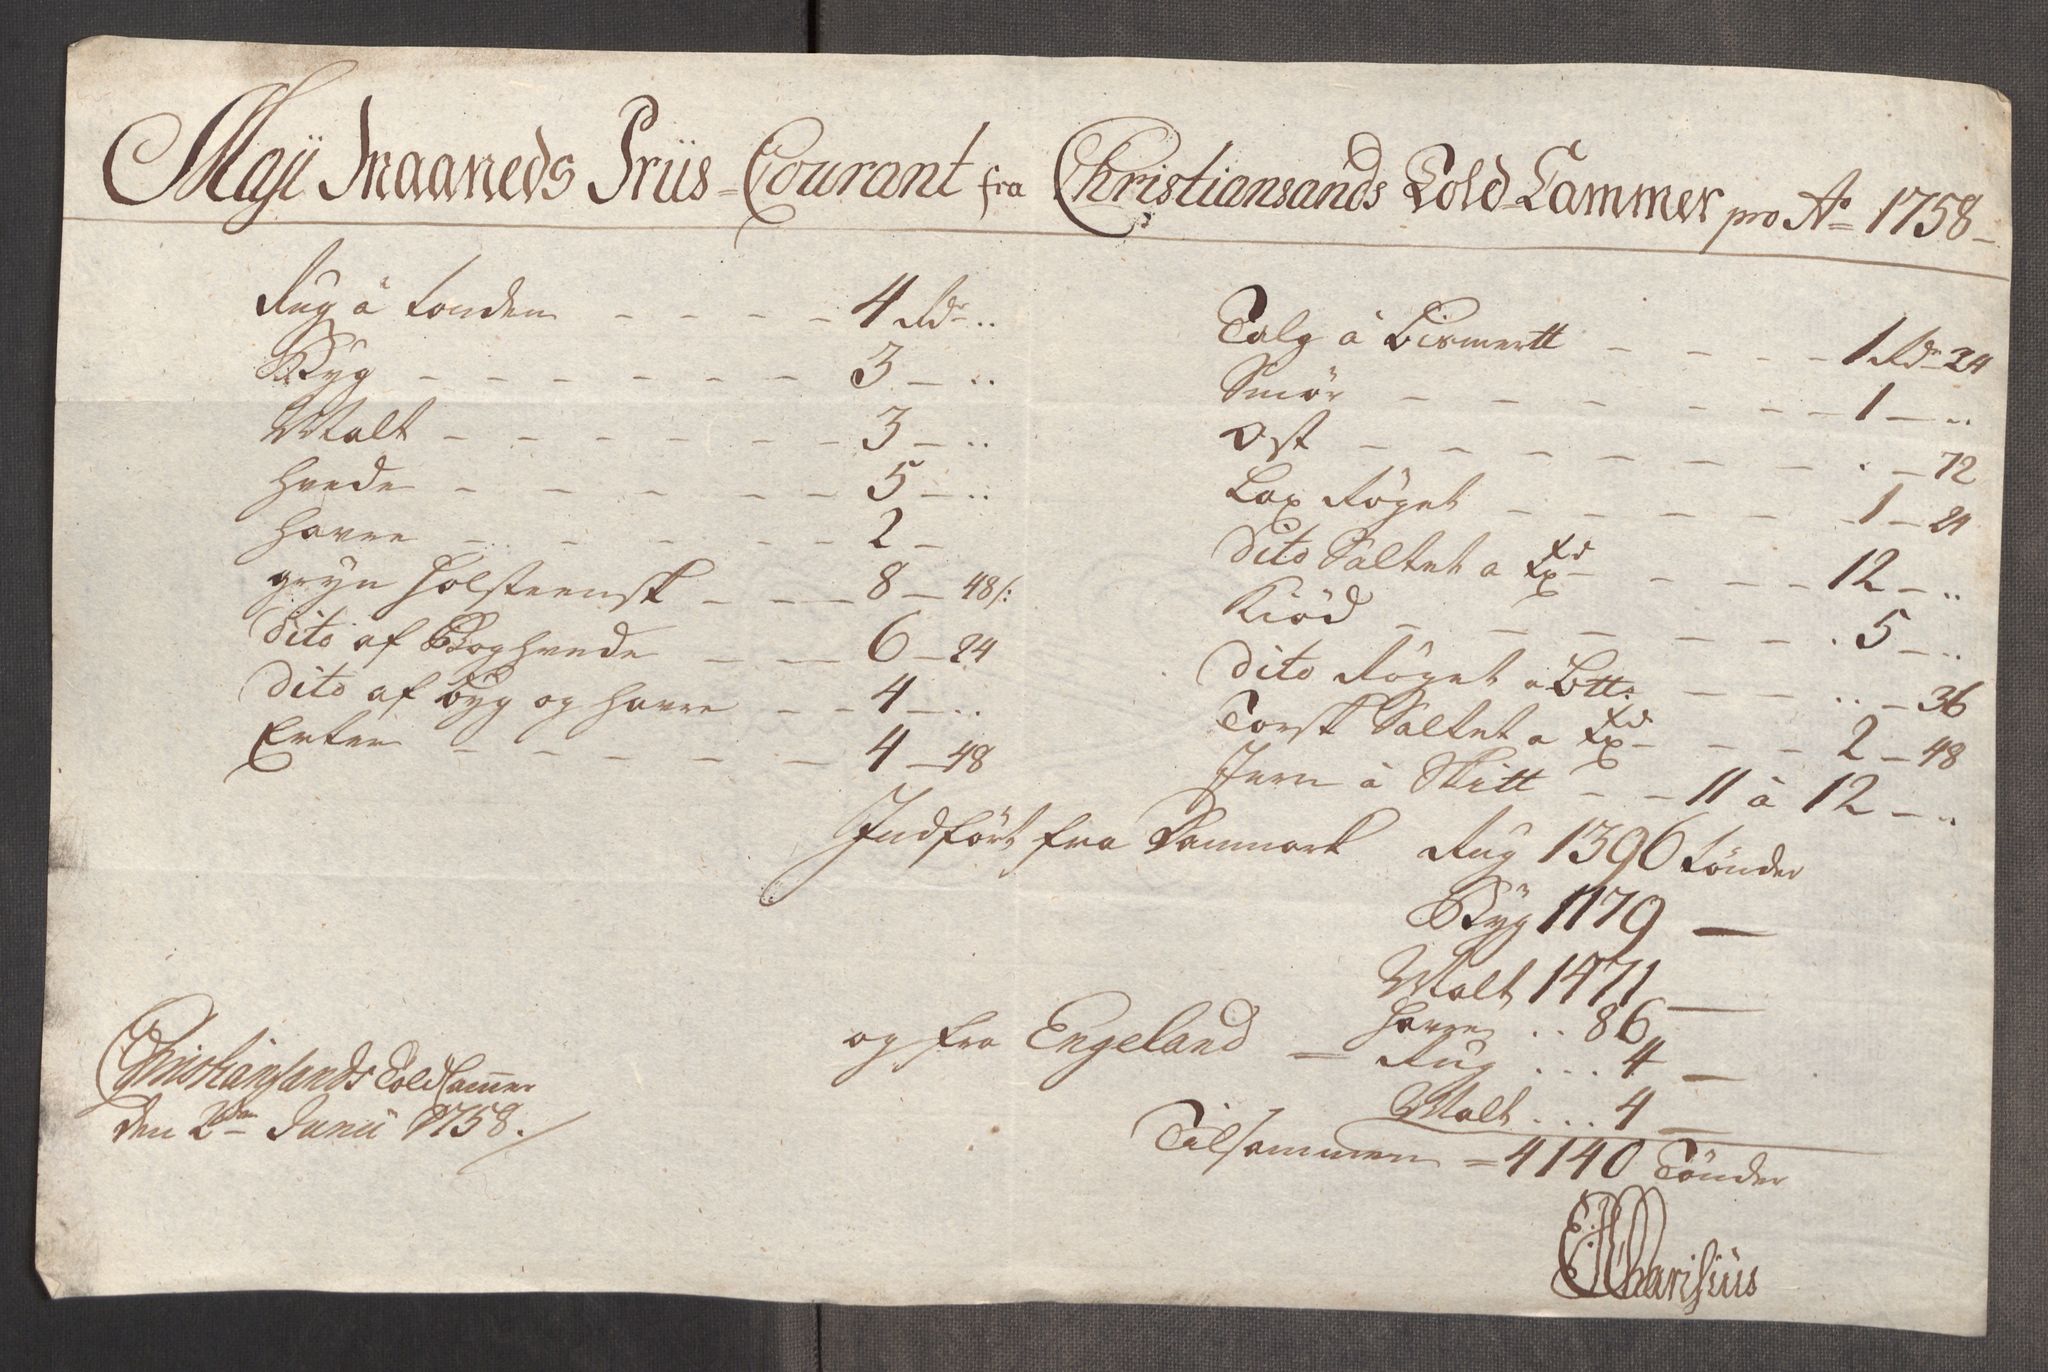 Maji Maaneds Priis-Courant fra Christiansands Told-Cammer pro Ao 1758
Rug á tonden 4 Rdr ..
Byg 3 ..
Malt 3 ..
hvede 5 ..
havre 2
gryn holsteensk 8 48 s:
dito af Boghvede 6 24
dito af byg og havre 4 ..
Erter 4 48
Talg á Bismertt 1 Rdr 24
Smör 1 ..
Ost . 72
Lax Röget 1 24
dito Saltet a 12 ..
Kiöd . 5 ..
dito Röget a Btt: .. 36
Torsk Saltet a 2 48
Jern á Skitt 11 á 12 ..
Indfört fra Danmark Rug 1396 tönder
Byg 1179 —
Malt 1471 —
havre .. 86
og fra Engeland = Rug ... 4 —
Malt ... 4 —
Tilsammen = 4140 Tönder
Christiansands Told Cammer
den 2den Junii 1758.
Charisius